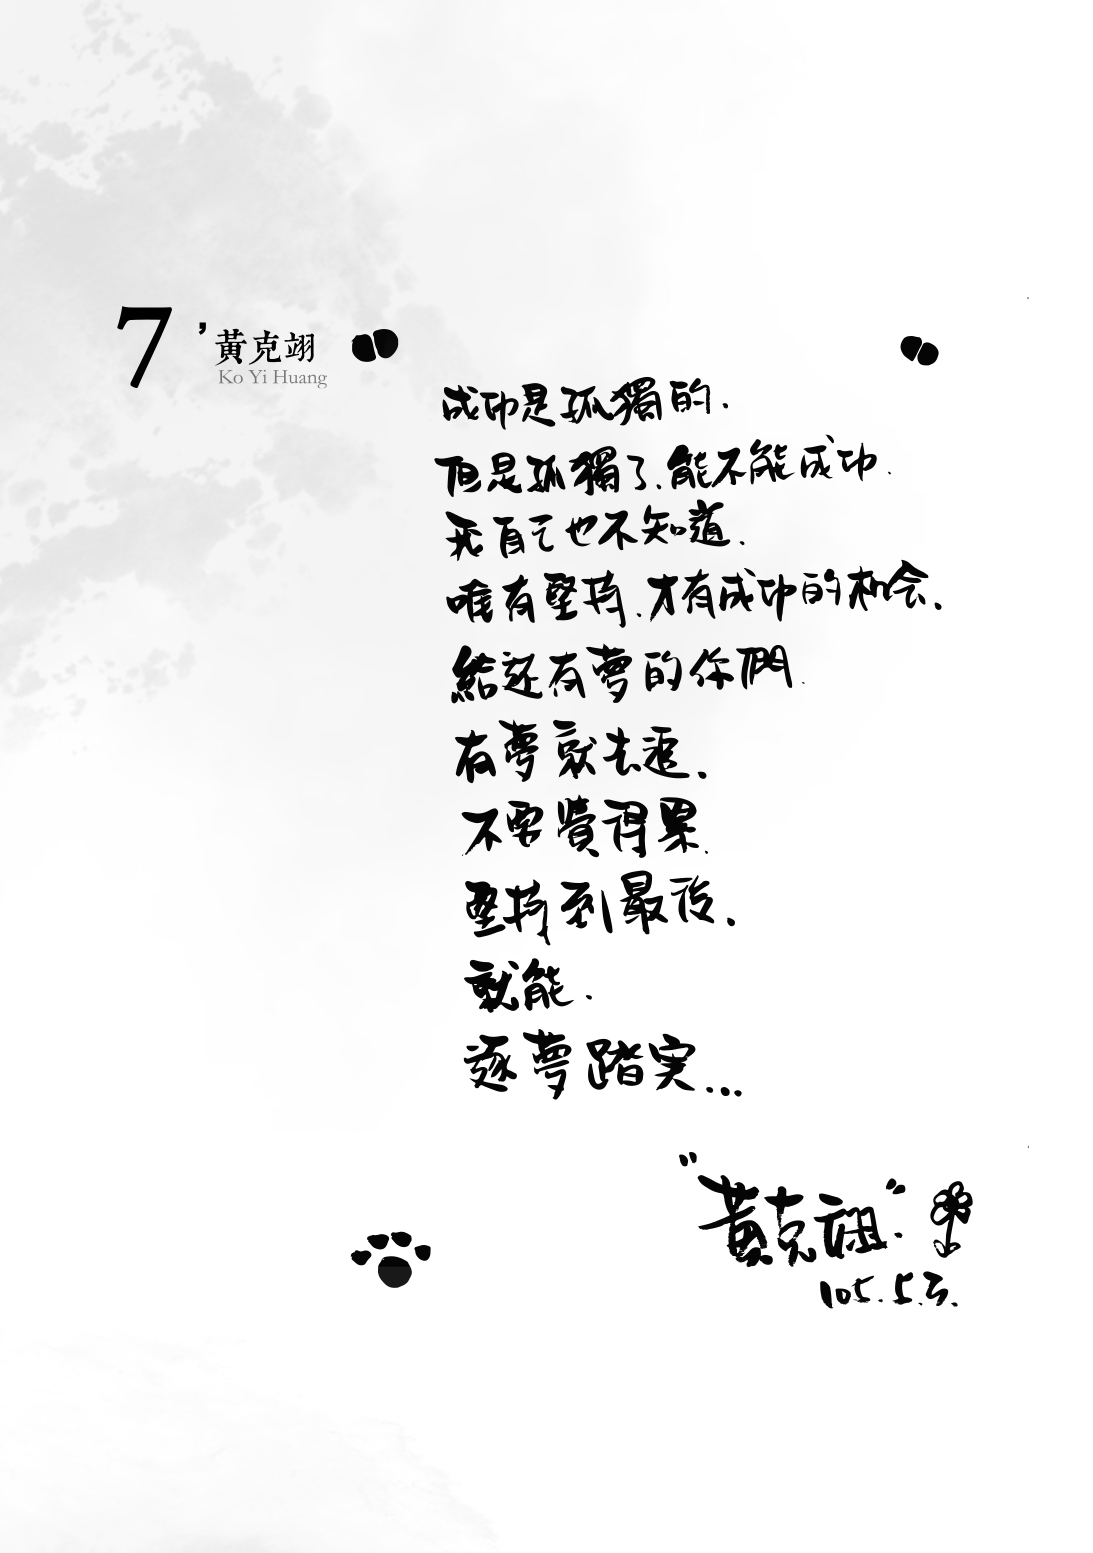 7 ’黃克翊
Ko Yi Huang
成功是孤獨的.
但是孤獨了.能不能成功.
我自己也不知道.
唯有堅持.才有成功的机会.
給还有夢的你們.
有夢就去追.
不要覺得累.
堅持到最後.
就能.
逐夢踏実...
"黃克翊".
105.5.3.